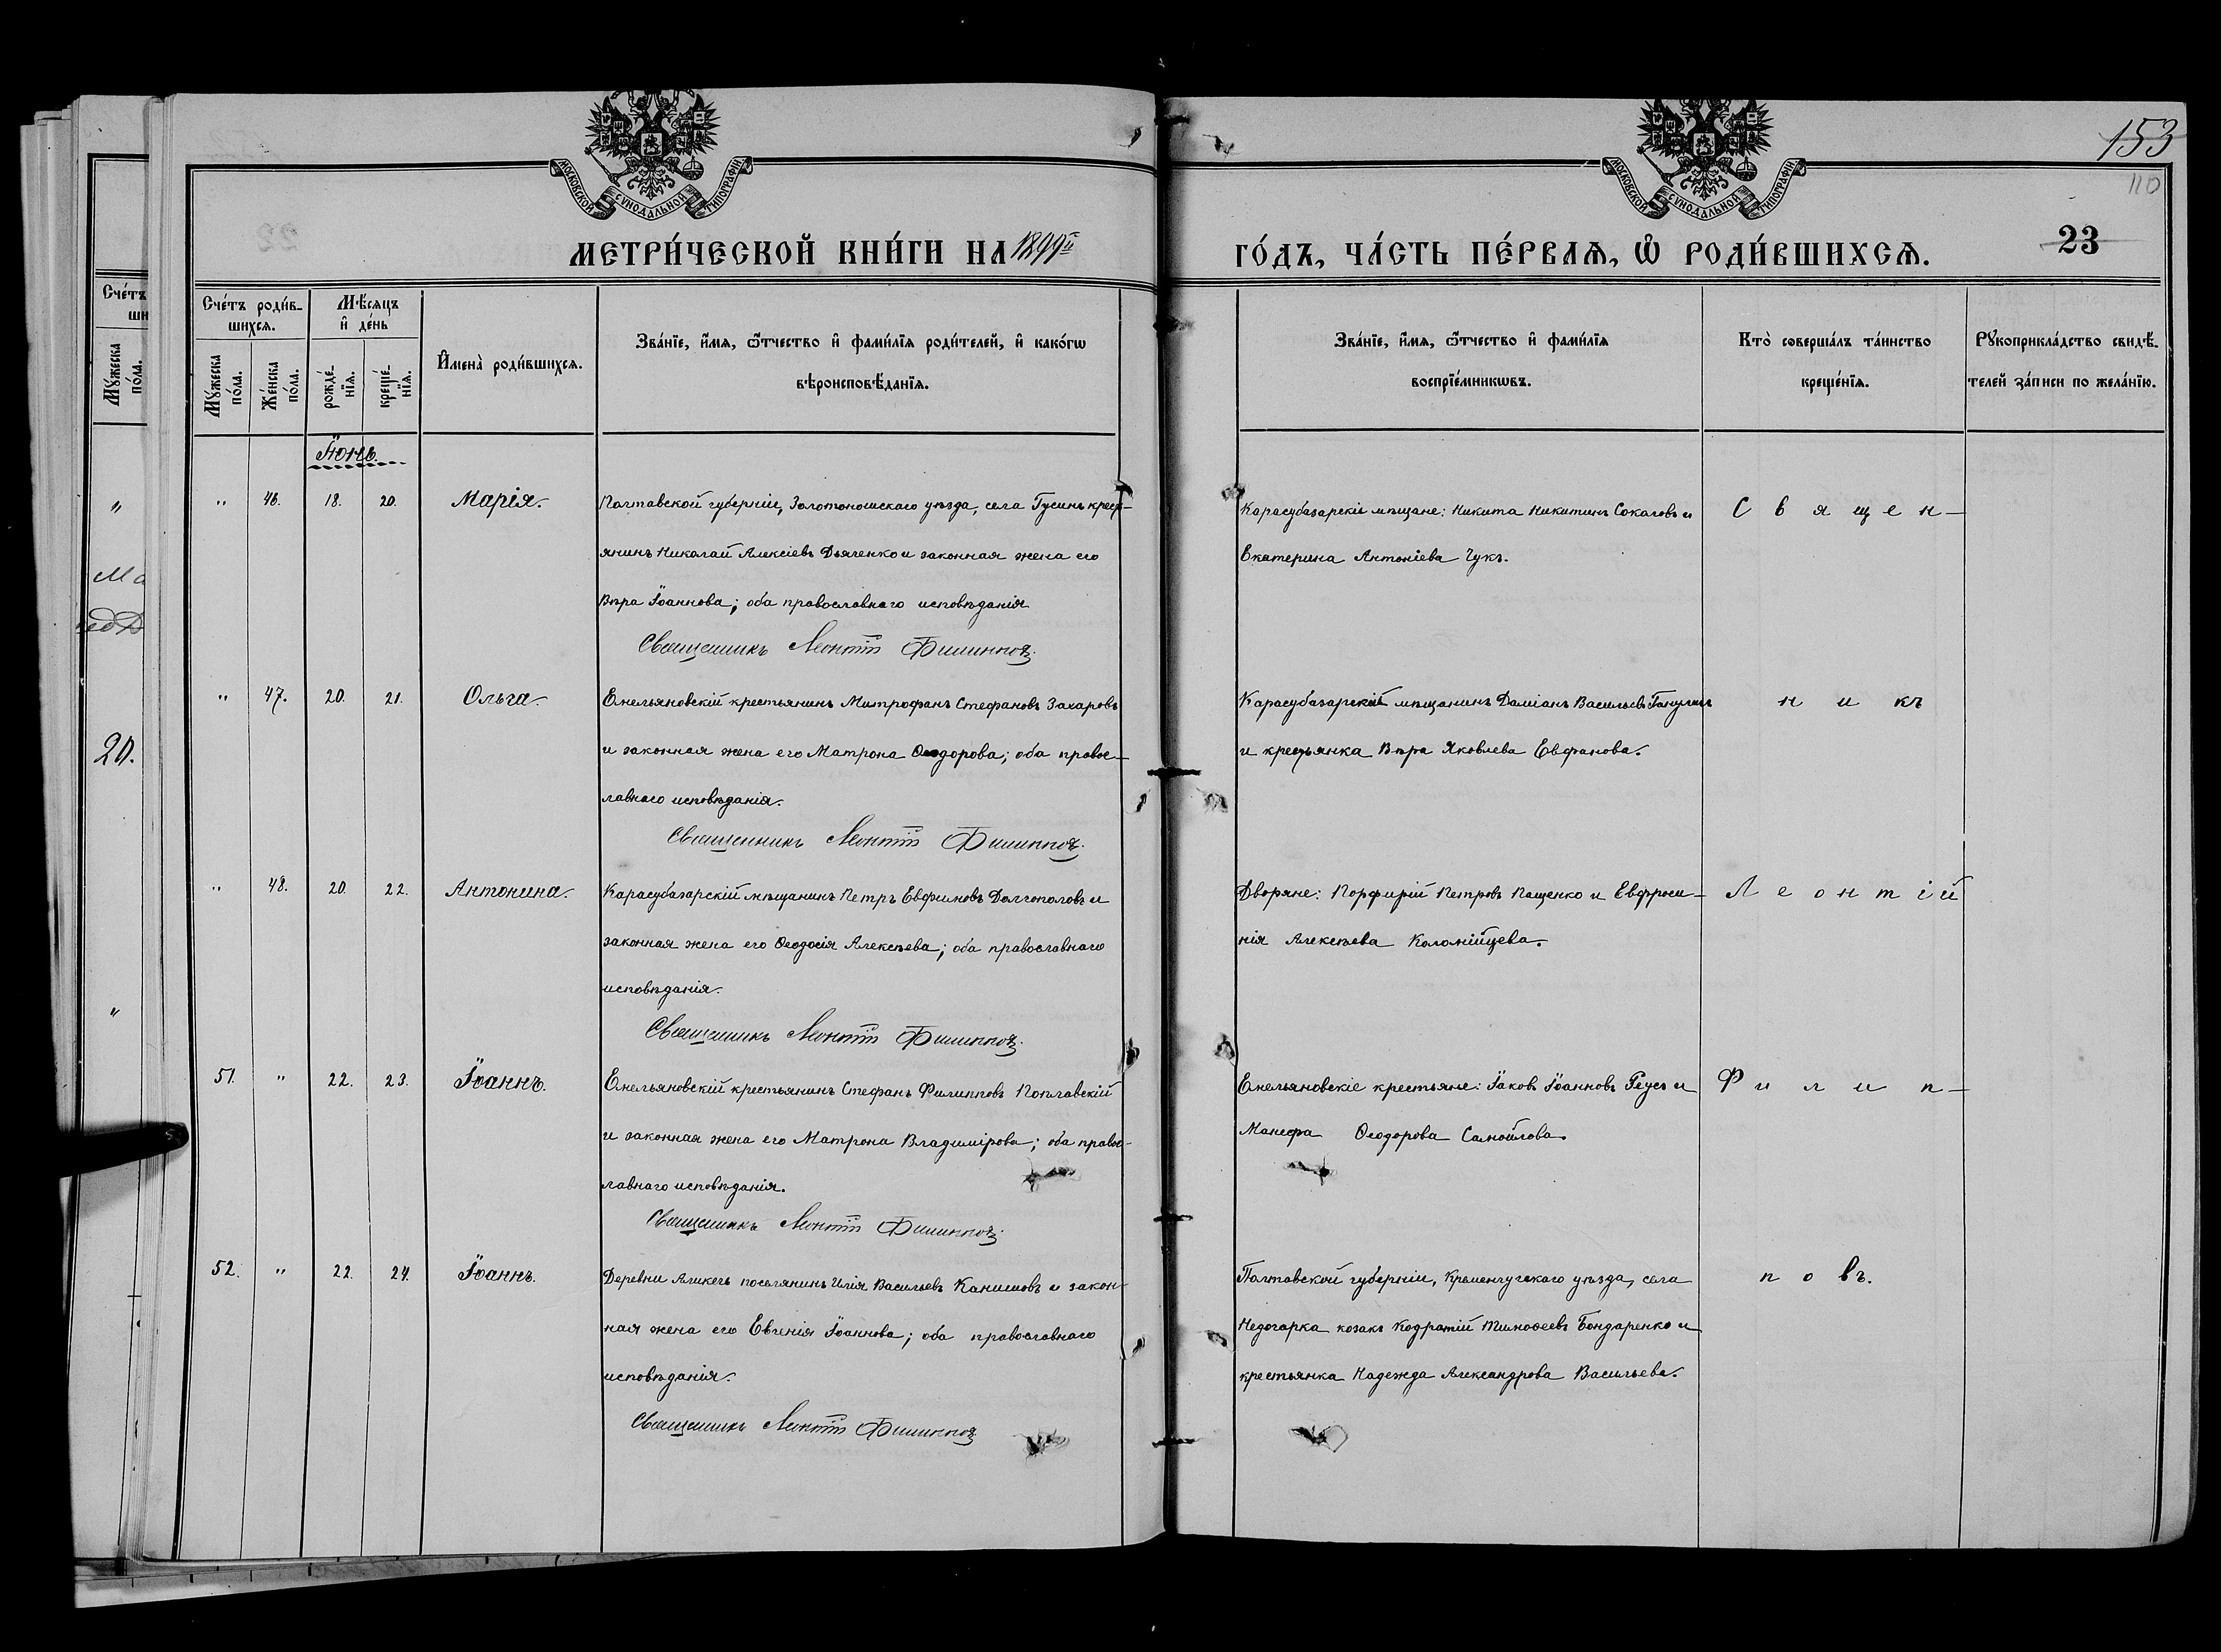 МОСКОВСКОЙ СУНОДАЛЬНОЙ ТИПОГРАФІИ
МОСКОВСКОЙ СУНОДАЛЬНОЙ ТИПОГРАФІИ
153
110
МЕТРИ́ЧЕСКОЙ КНИ́ГИ НА 1899й
ГО́ДЪ, ЧА́СТЬ ПЕ́РВАѦ, Ѡ҆ РОДИ́ВШИХСѦ.
23
Сче́тъ роди́в-
шихсѧ.
Мꙋ́жеска
по́ла.
Же́нска
по́ла.
Мѣ́сѧцъ
и҆ де́нь
рожде́-
нїѧ.
креще́-
нїѧ.
И҆мена̀ роди́вшихсѧ.
Зва́нїе, и҆́мѧ, ѻ҆́тчество и҆ фами́лїѧ роди́телей, и҆ како́гѡ
вѣроисповѣ́данїѧ.
Зва́нїе, и҆́мѧ, ѻ҆́тчество и҆ фами́лїѧ
воспрїе́мникѡвъ.
Кто̀ соверша́лъ та́инство
креще́нїѧ.
Рꙋкоприкла́дство свидѣ́-
телей за́писи по жела́нїю.
Іюнь.
" 46. 18. 20. Марія.
Полтавской губерніи, Золотоношскаго уѣзда, села Гусинь крест-
янинъ Николай Алексіевъ Дьяченко и законная жена его
Вѣра Іоаннова; оба православнаго исповѣданія
Священникъ Леонтій Филипповъ.
Карасубазарскіе мѣщане: Никита Никитинъ Соколовъ и
Екатерина Антоніева Чукъ.
Священ-
" 47. 20. 21. Ольга.
Емельяновскій крестьянинъ Митрофанъ Стефановъ Захаровъ
и законная жена его Матрона Ѳеодорова; оба право-
лавнаго исповѣданія.
Священникъ Леонтій Филипповъ.
Карасубазарскій мѣщанинъ Даміанъ Васильевъ
и крестьянка Вѣра Яковлева Евфанова.
никъ
" 48. 20. 22. Антонина.
Карасубазарскій мѣщанинъ Петръ Евфимовъ Долгополовъ и
законная жена его Ѳеодосія Алексѣева; оба православнаго
исповѣданія.
Священникъ Леонтій Филипповъ.
Дворяне: Порфирій Петровъ Пащенко и Евфроси-
нія Алексѣева Коломійцева.
Леонтій
51. " 22. 23. Іоаннъ.
Емельяновскій крестьянинъ Стефанъ Филипповъ Поплавскій
и законная жена его Матрона Владимірова; оба право-
лавнаго исповѣданія.
Священникъ Леонтій Филипповъ.
Емельяновскіе крестьяне: Іаковъ Іоанновъ Реусъ и
Манефа Ѳеодорова Самойлова.
Филип-
52. " 22. 24. Іоаннъ.
Деревни Аликечь поселянинъ Илія Васильевъ Канишовъ и закон-
ная жена его Евгенія Іоаннова; оба православнаго
исповѣданія.
Священникъ Леонтій Филипповъ
Полтавской губерніи, Кременчугскаго уѣзда, села
Недогарка козакъ Кодратій Тимоѳеевъ Бондаренко и
крестьянка Надежда Александрова Васильева.
повъ.